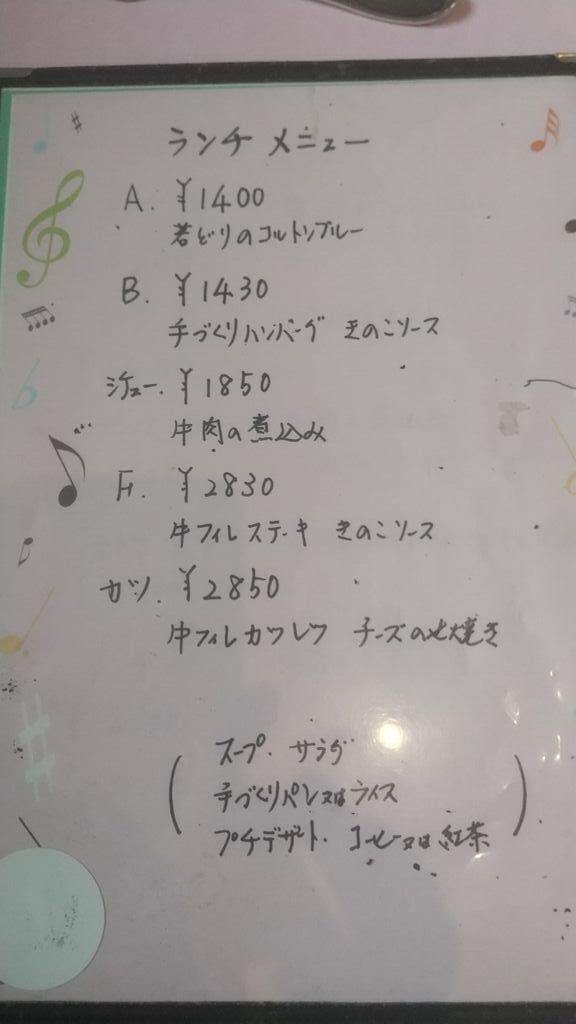 ランチ メニュー
A. ¥1400
若どりのコルドンブルー
B. ¥1430
手づくりハンバーグ きのこソース
シチュー. ¥1850
牛肉の煮込み
F. ¥2830
牛フィレステーキ きのこソース
カツ. ¥2850
牛フィレカツレツ チーズのせ焼き
(スープ. サラダ
手づくりパン又はライス
プチデザート. コーヒー又は紅茶)